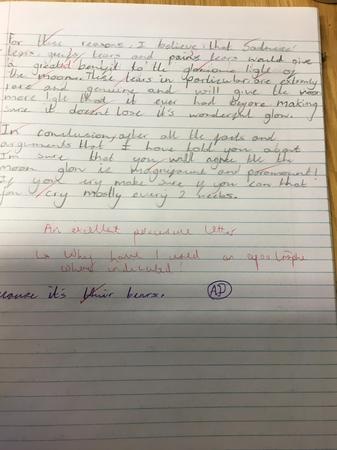 For these reasons, I believe that Sadness
tears, tears and pains tears would give
a great benifit to the light of
the moon. These tears in particular are extremly
rare and genuine and will give the moon
more light that it ever had before making
sure it doesnt lose it's wonderful glow.
In conclusion, after all the facts and
arguments that I have told you about
I'm sure that you will agree the
moon glow is magnificent and paramount!
If you cry make sure if you can that
you cry mostly every 2 weeks.
An letter
Why have I used an apostrophe
where indicated!
ecause it's their tears.